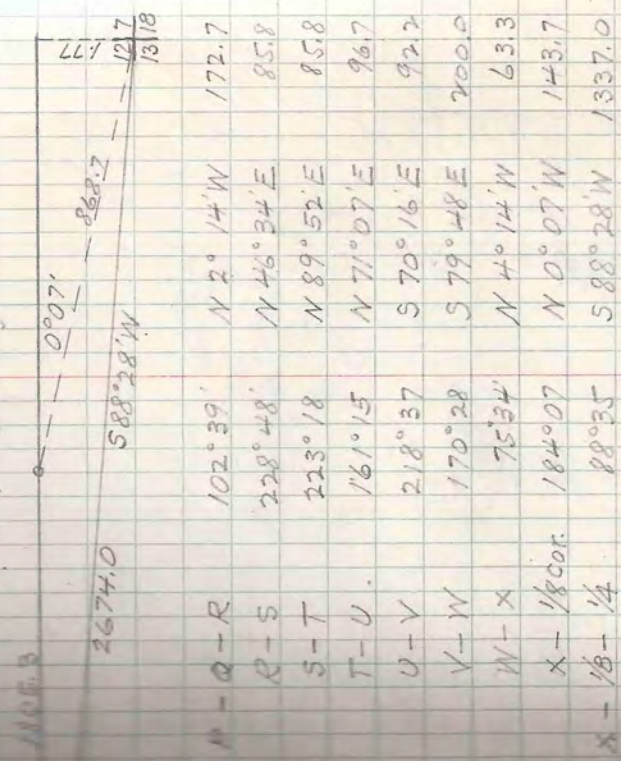 1.77
12 7
13 18
0°07' 868.7
2674.0 S 88°28'W
Q - R 102°39' N 2° 14' W 172.7
R - S 228°48' N 46°34' E 85.8
S - T 223°18 N 89°52' E 85.8
T - U. 161°15 N 71°07' E 96.7
U - V 218°37 S 70°16' E 92.2
V - W 170°28 S 79°48 E 200.0
W - X 75°34' N 4°14' W 63.3
X - 1/8 Cor. 184°07 N 0°07' W 143.7
X - 1/8 - 1/4 88°35 S 88°28' W 1337.0